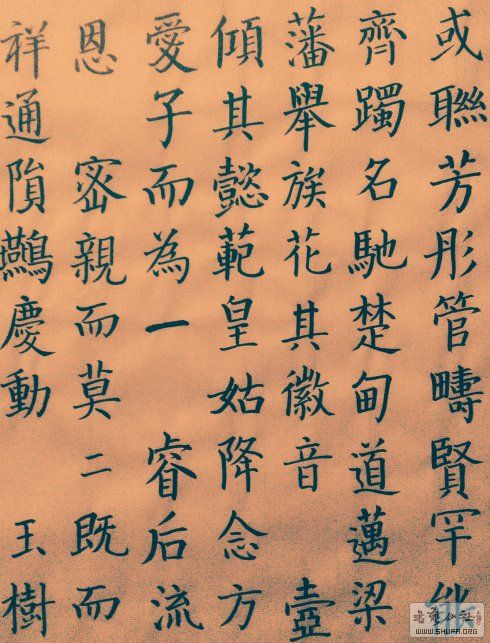 或聯芳彤管疇賢罕
齊躅名馳楚甸道邁梁
藩舉族花其徽音 壼
傾其懿範皇姑降念方
愛子而為一 睿后流
恩 密親而莫二既而
祥通隕鷰慶動 玉樹
WWW.SHUFA.ORG